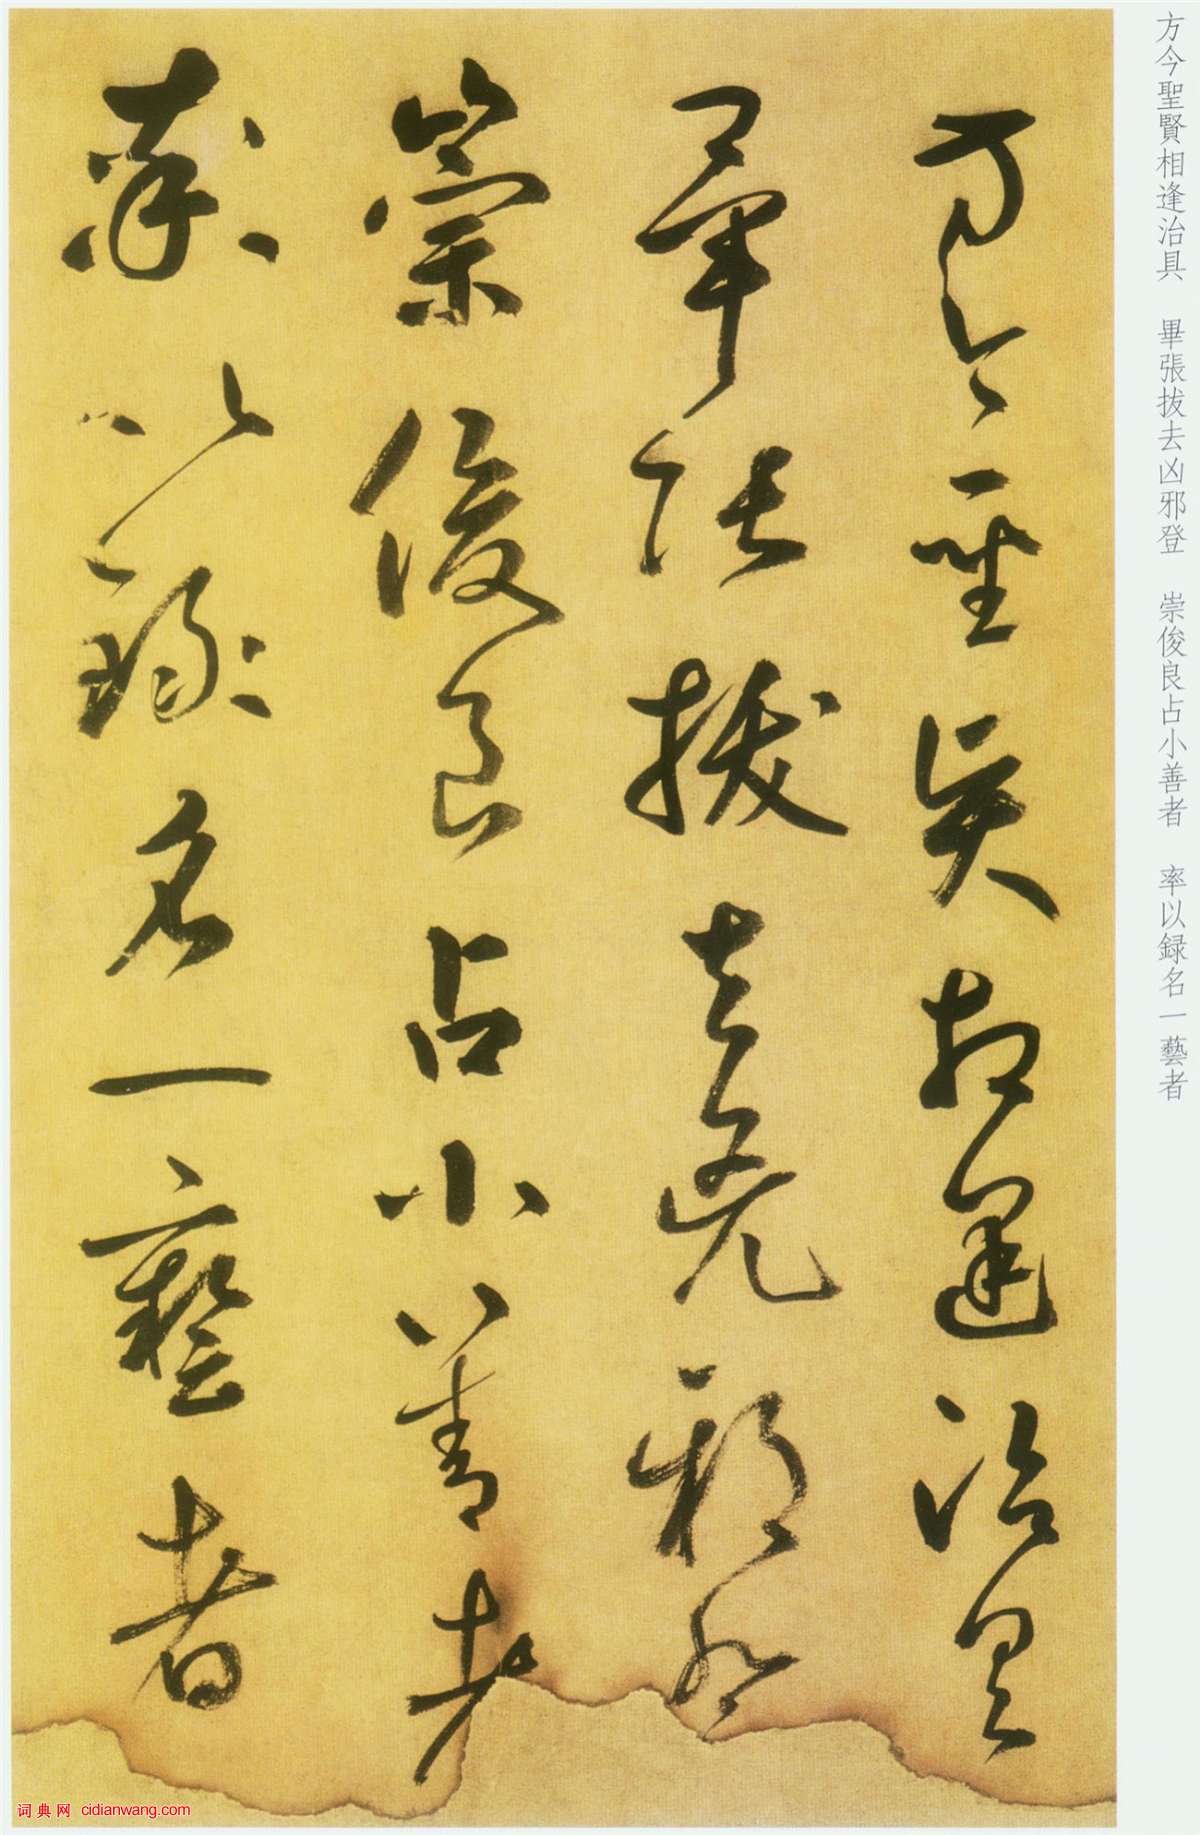 方今聖賢相逢治具
畢張拔去凶邪登
崇俊良占小善者
率以録名一藝者
方今聖賢相逢治具 畢張拔去凶邪登 崇俊良占小善者 率以録名一藝者
词典网 cidianwang.com